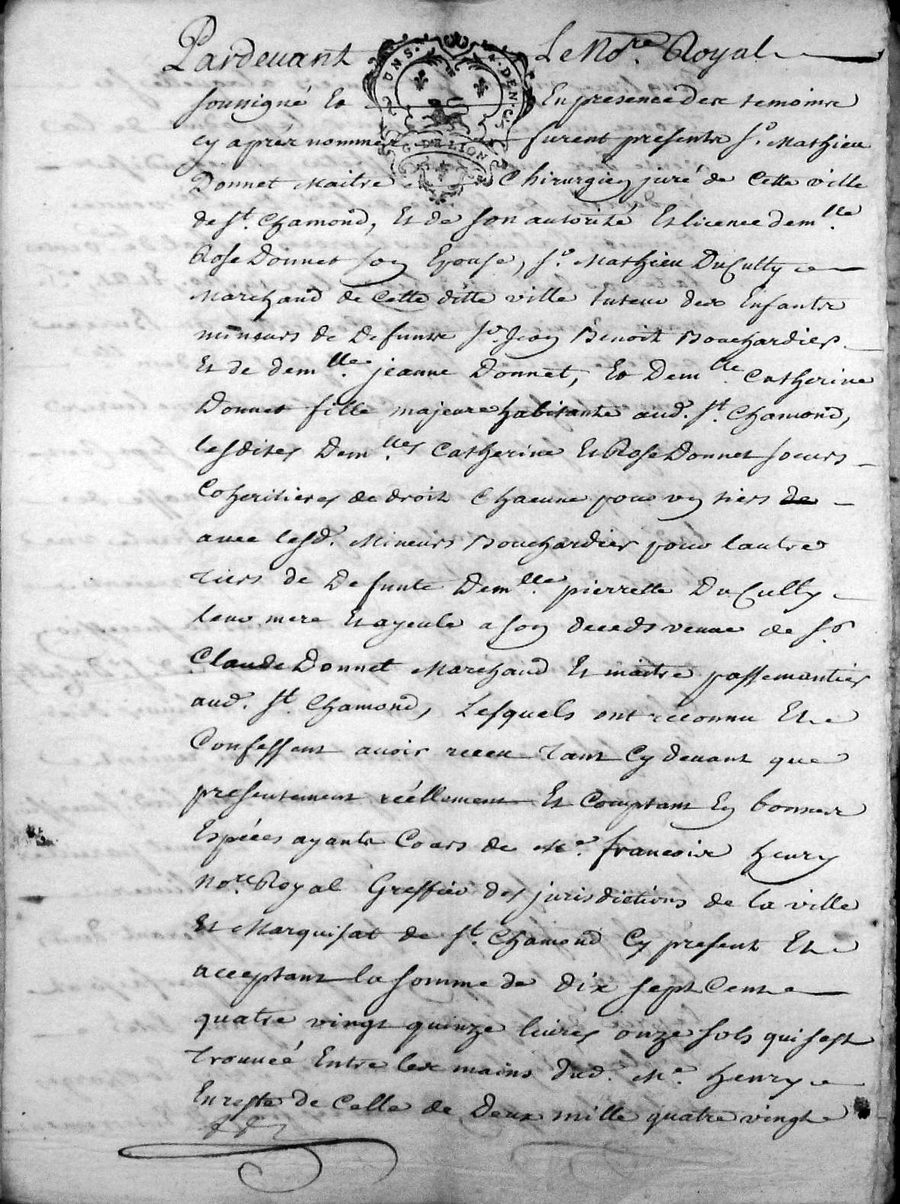 Pardevant Le No.re Royal
soussigné Et En presence des temoins
cy aprés nommés furent presents S.r Mathieu
Donnet Maitre Chirurgien juré de Cette ville
de S.t Chamond, Et de son autorité Et licence dem.lle
Rose Donnet son Epouse, S.r Mathieu DuCully
Marchand de Cette ditte ville tuteur des Enfants
mineurs de Defunts S.r Jean Benoit Bouchardier
Et de dem.lle jeanne Donnet, Et Dem.lle Catherine
Donnet fille majeure habitante aud. S.t Chamond,
lesdites Dem.lles Catherine Et Rose Donnet soeurs
Coheritieres de droit Chacune pour un tiers de
avec lesd. Mineurs Bouchardier pour lautre
tiers de Defunte Dem.lle pierrette DuCully
leur mere Et ayeule a son deceds veuve de S.r
Claude Donnet Marchand Et maitre passementier
aud. S.t Chamond, Lesquels ont reconnu Et
Confessent avoir receu tant Cy devant que
presentement réellement Et Comptant En bonnes
Espéces ayants Cours de M.e francois henry
No.re Royal Greffier des jurisdictions de la ville
Et Marquisat de S.t Chamond Cy present Et
acceptant la somme de dix sept Cents
quatre vingt quinze livres onze sols qui sest
trouvéé Entre les mains dud. M.e henry
En reste de Celle de Deux mille quatre vingt
UNS. DEN.
G. DE LION